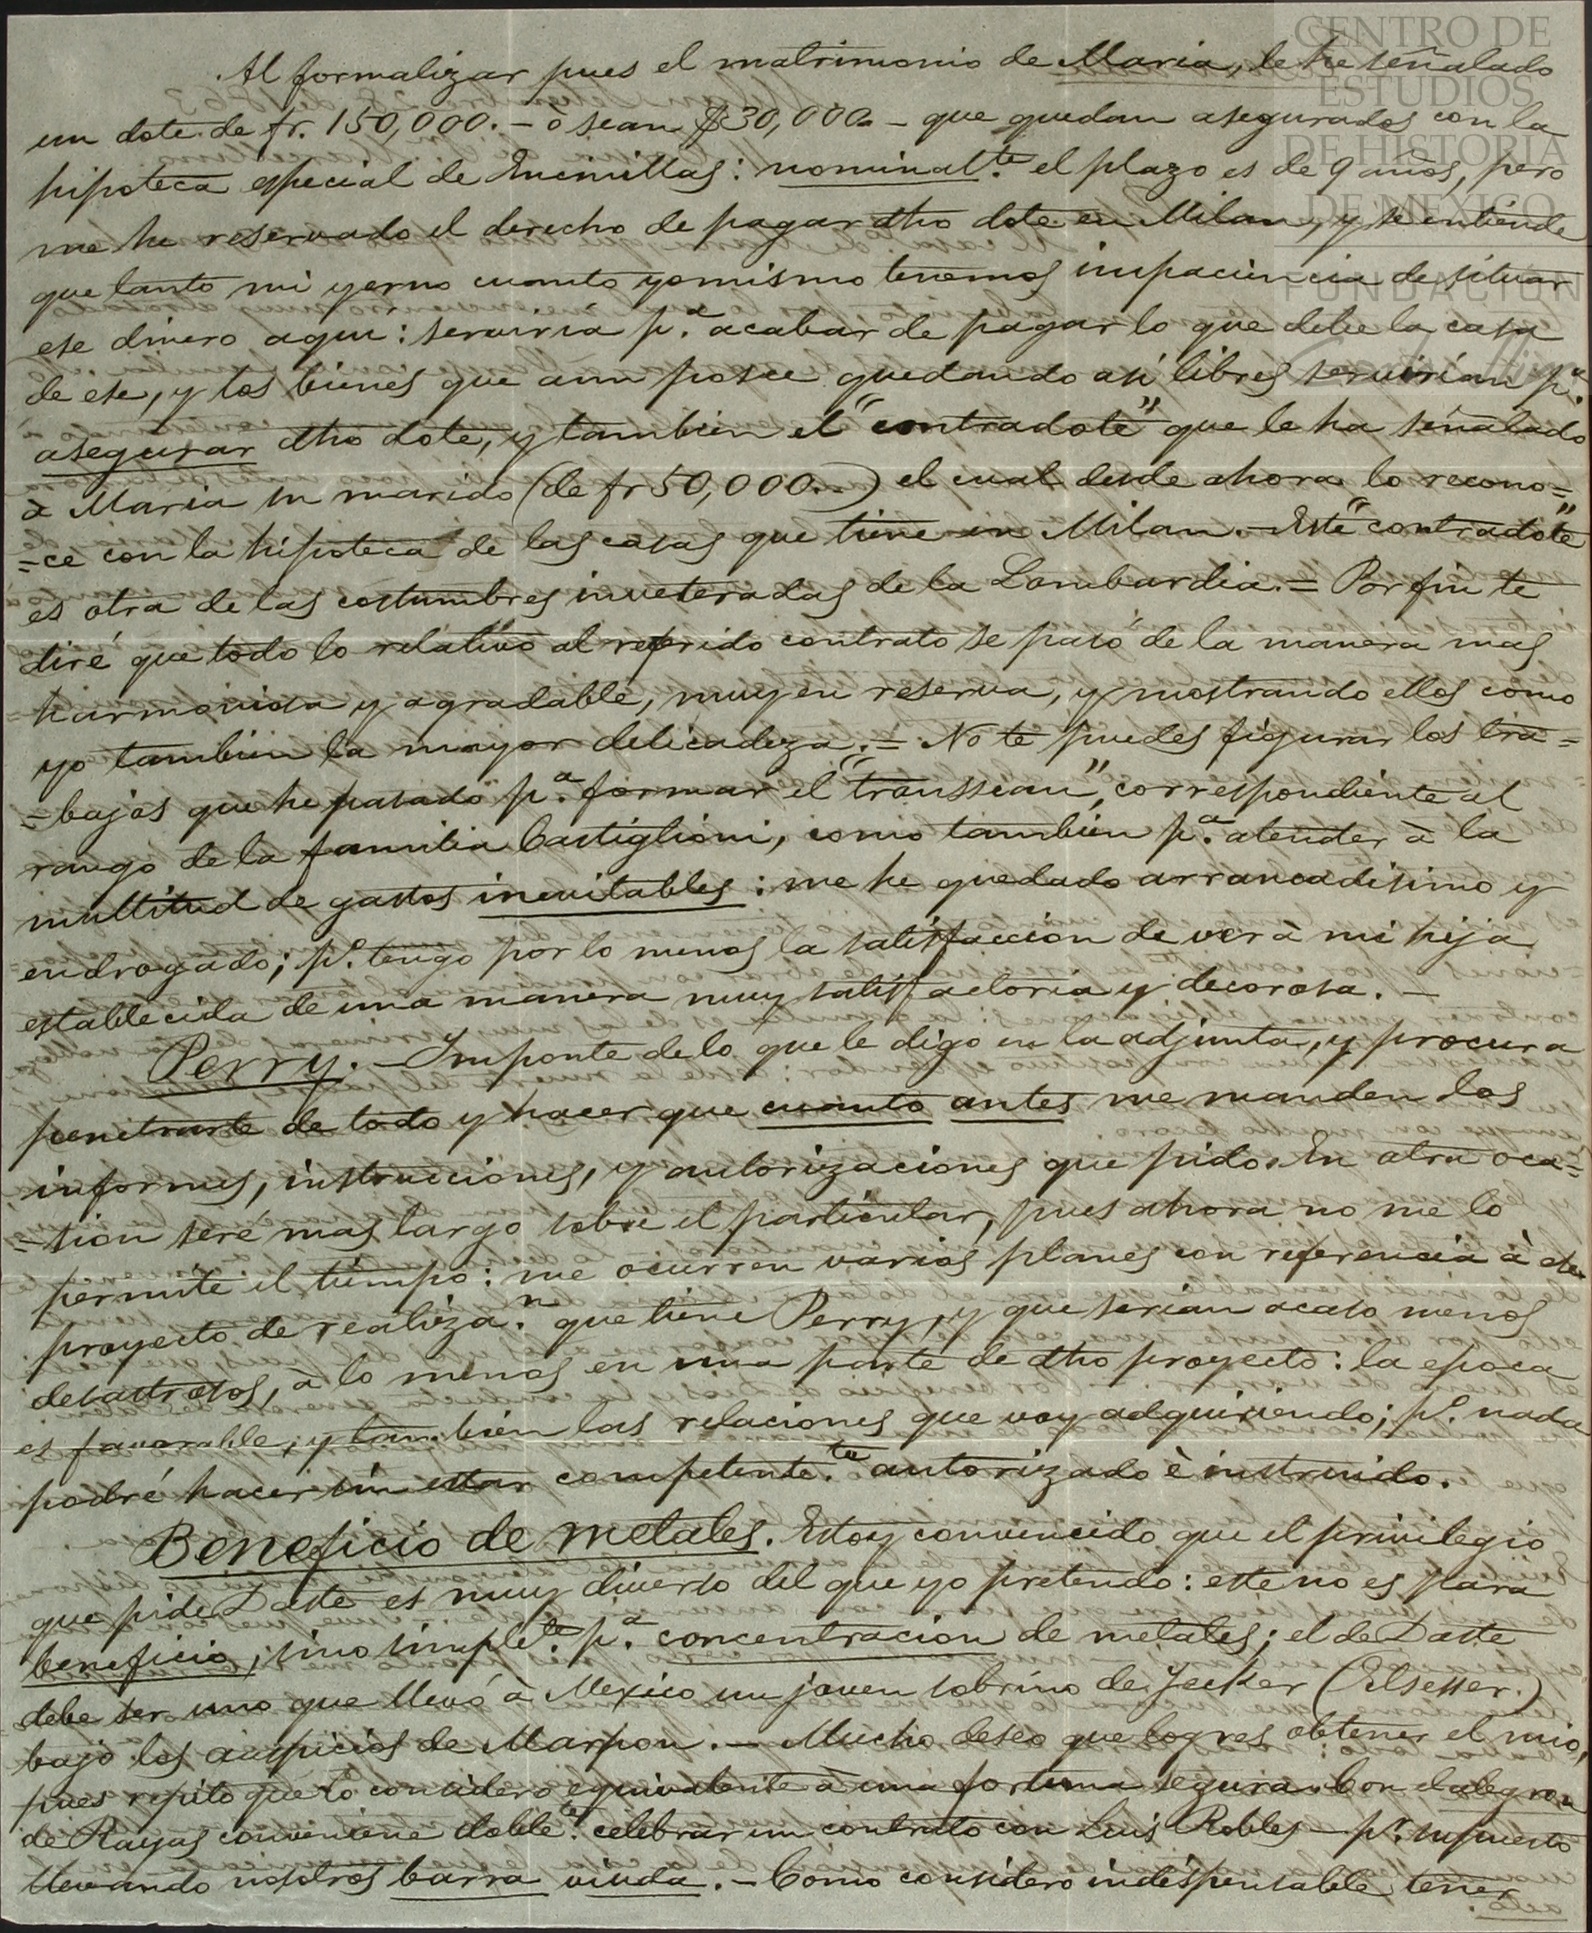 CENTRO DE
ESTUDIOS
DE HISTORIA
DE MEXICO
FUNDACIÓN
Al formalizar pues el matrimonio de Maria, le he señalado
un dote de fr. 150,000. — ò sean $30,000. — que quedan asegurados con la
hipoteca especial de Encinillas: nominal.te el plazo es de 9 años, pero
me he reservado el derecho de pagar dho dote en Milan, y se entiende
que tanto mi yerno cuanto yo mismo tenemos impaciencia de situar
ese dinero aqui: serviria p.a acabar de pagar lo que debe la casa
de ese, y los bienes que aun posee quedando asi libres servirian p.a
asegurar dho dote, y tambien el "contradote" que le ha señalado
à Maria su marido (de fr 50,000..) el cual desde ahora lo recono=
=ce con la hipoteca de las casas que tiene en Milan. — Este "contradote"
es otra de las costumbres inveteradas de la Lombardia. = Por fin te
diré que todo lo relativo al referido contrato se pasó de la manera mas
harmoniosa y agradable, muy en reserva, y mostrando ellos como
yo tambien la mayor delicadeza. = No te puedes figurar los tra=
=bajos que he pasado p.a formar el "trousseau", correspondiente al
rango de la familia Castiglioni, como tambien p.a atender à la
multitud de gastos inevitables: me he quedado arrancadisimo y
endrogado; p.o tengo por lo menos la satisfaccion de ver à mi hija
establecida de una manera muy satisfactoria y decorosa. —
Perry. — Imponte de lo que le digo en la adjunta, y procura
penetrarte de todo y hacer que cuanto antes me manden los
informes, instrucciones, y autorizaciones que pido. En otra oca=
=sion seré mas largo sobre el particular, pues ahora no me lo
permite el tiempo: me ocurren varios planes con referencia à ese
proyecto de realiza.n que tiene Perry, y que serian acaso menos
desastrosos, à lo menos en una parte de dho proyecto: la epoca
es favorable, y tambien las relaciones que voy adquiriendo; p.o nada
podré hacer sin estar competente.te autorizado è instruido.
Beneficio de metales. Estoy convencido que el privilegio
que pide Daste es muy diverso del que yo pretendo: este no es para
beneficio, sino simple.te p.a concentracion de metales; el de Daste
debe ser uno que llevó à Mexico un joven sobrino de Jecker (Elsesser.)
bajo los auspicios de Marpon. — Mucho deseo que logres obtener el mio,
pues repito que lo considero equivalente à una fortuna segura. Con el alegron
de Rayas conviene doble.te celebrar un contrato con Luis Robles — p.r supuesto
llevando nosotros barra viuda. — Como considero indispensable tener